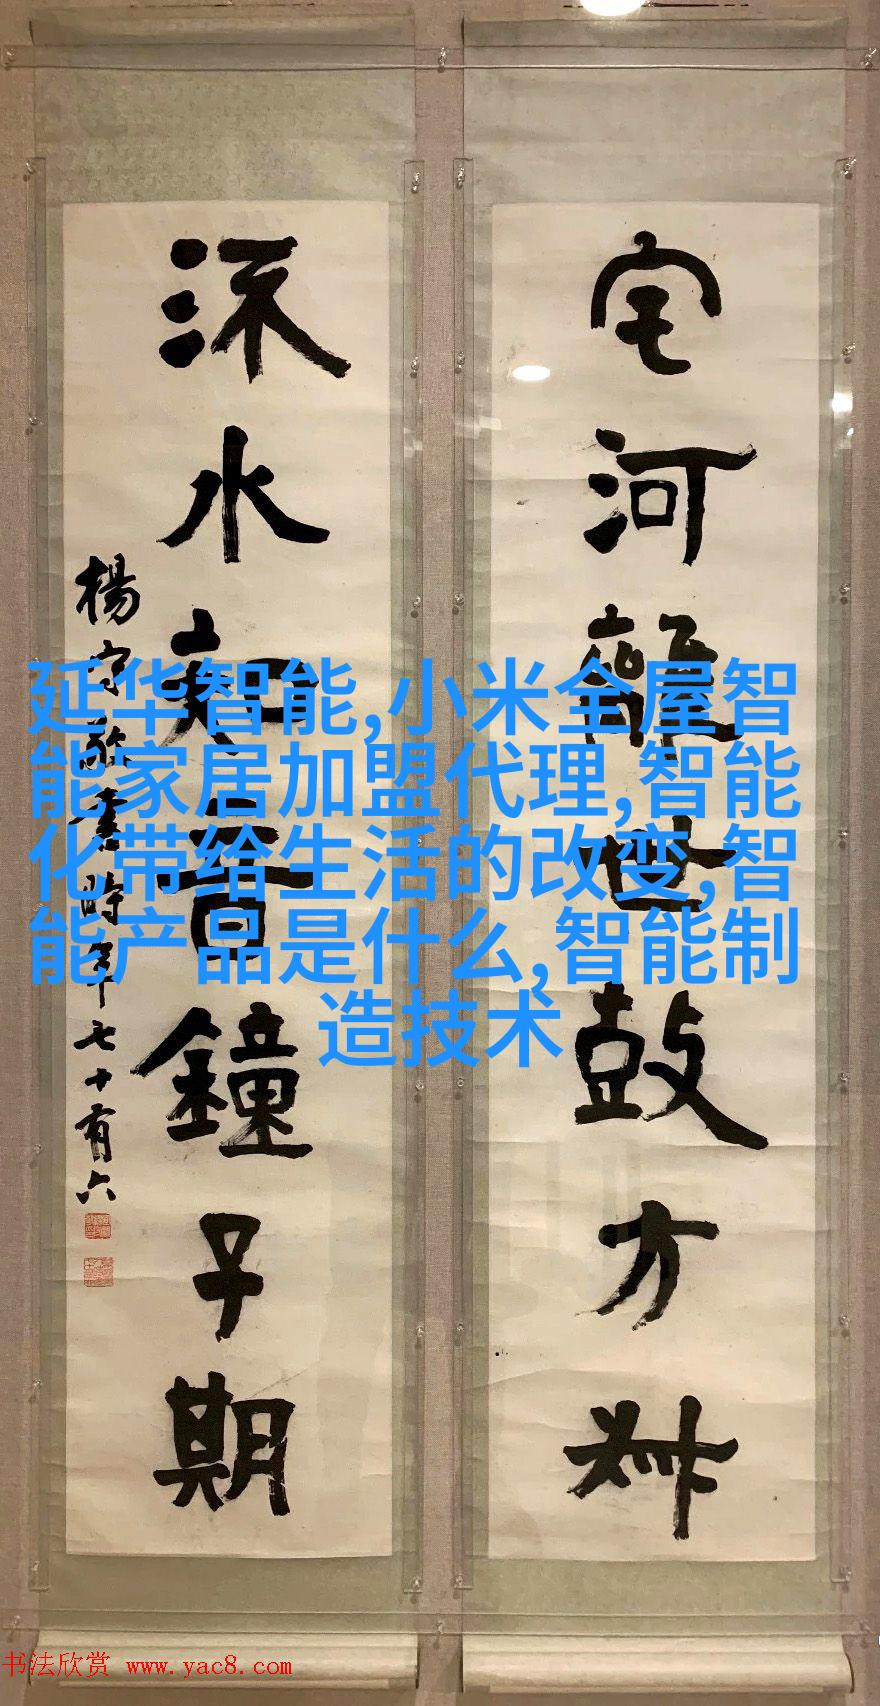 宅河世鼓方叔
流水知音鐘子期
楊守敬書時年七十有六
延华智能,小米全屋智
能家居加盟代理,智能
化带给生活的改变,智
能产品是什么,智能制
造技术
书法欣赏 www.yac8.com